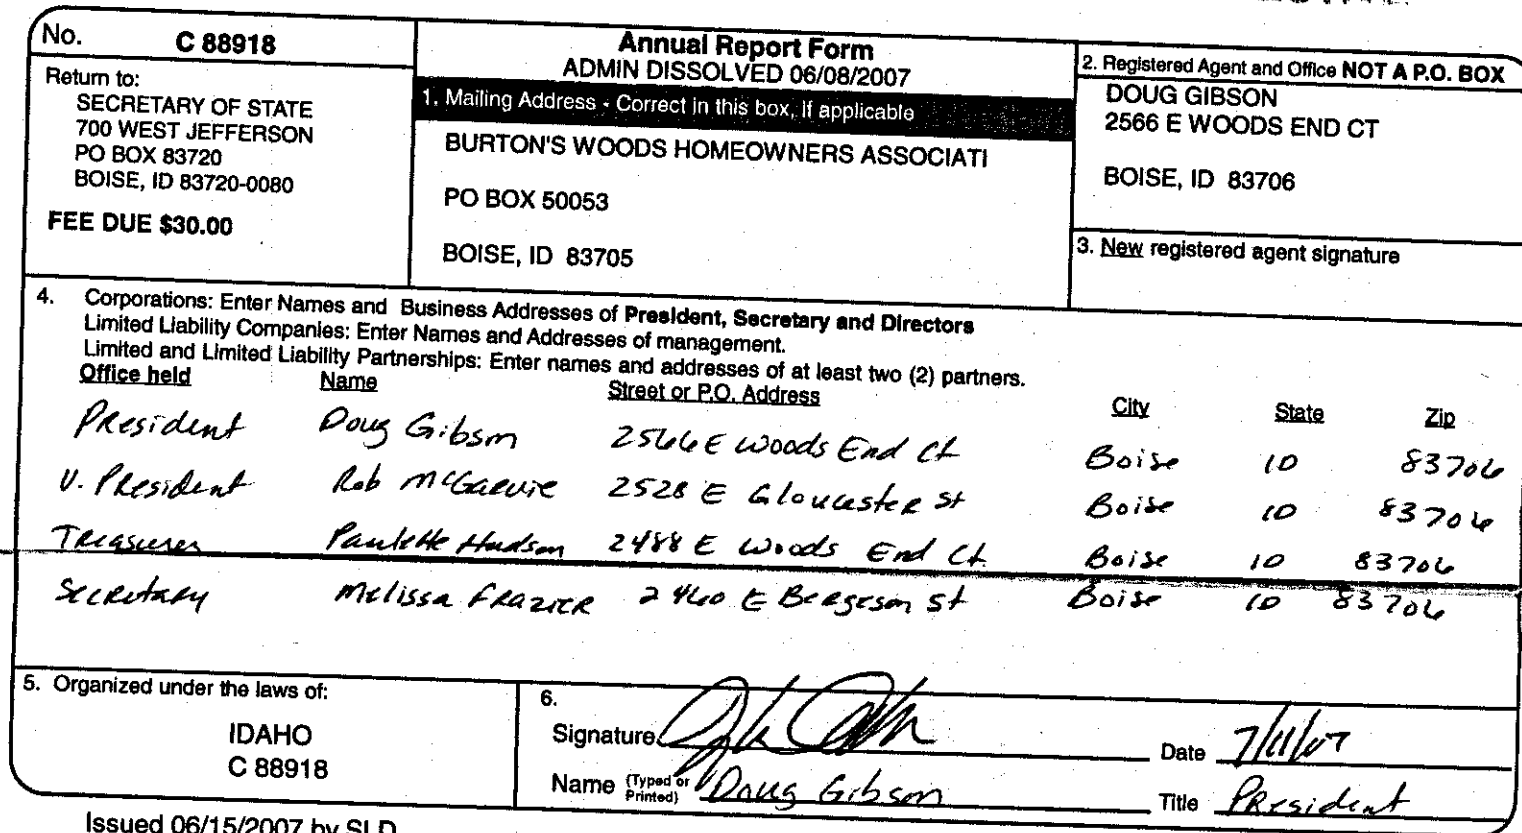 No. C 88918
Return to:
SECRETARY OF STATE
700 WEST JEFFERSON
PO BOX 83720
BOISE, ID 83720-0080
FEE DUE $30.00
Annual Report Form
ADMIN DISSOLVED 06/08/2007
1. Mailing Address - Correct in this box, if applicable
BURTON'S WOODS HOMEOWNERS ASSOCIATI
PO BOX 50053
BOISE, ID 83705
2. Registered Agent and Office NOT A P.O. BOX
DOUG GIBSON
2566 E WOODS END CT
BOISE, ID 83706
3. New registered agent signature
4. Corporations: Enter Names and Business Addresses of President, Secretary and Directors
Limited Liability Companies: Enter Names and Addresses of management.
Limited and Limited Liability Partnerships: Enter names and addresses of at least two (2) partners.
Office held Name Street or P.O. Address City State Zip
President Doug Gibson 2566 E Woods End Ct Boise ID 83706
V. President Rob McGarvie 2528 E Gloucester St Boise ID 83706
Treasurer Paulette Hudson 2488 E Woods End Ct. Boise ID 83706
Secretary Melissa Frazier 2460 E Bergeson St Boise ID 83706
5. Organized under the laws of:
IDAHO
C 88918
6.
Signature Date 7/11/07
Name (Typed or Printed) Doug Gibson Title President
Issued 06/15/2007 by SLD